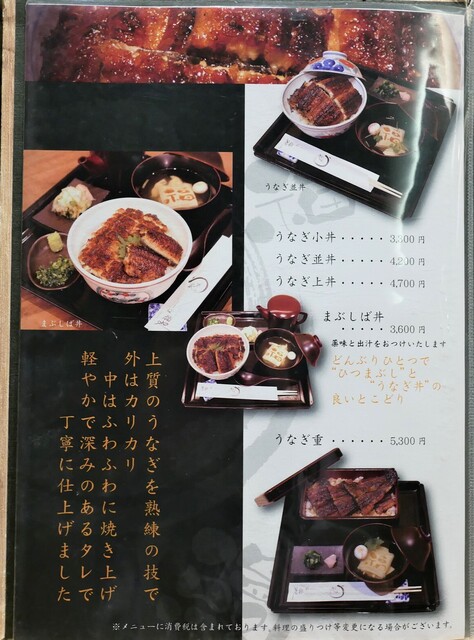 うなぎ並丼
うなぎ小丼・・・・・3,300円
うなぎ並丼・・・・・4,200円
うなぎ上丼・・・・・4,700円
まぶしば丼
まぶしば丼
・・・・・3,600円
薬味と出汁をおつけいたします
どんぶりひとつで
"ひつまぶし"と
"うなぎ丼"の
良いとこどり
上質のうなぎを熟練の技で
外はカリカリ
中はふわふわに焼き上げ
軽やかで深みのあるタレで
丁寧に仕上げました
うなぎ重・・・・・・5,300円
※メニューに消費税は含まれております。料理の盛りつけ等変更になる場合がございます。